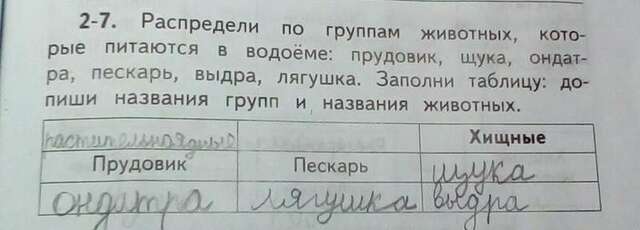 2-7. Распредели по группам животных, кото-
рые питаются в водоёме: прудовик, щука, ондат-
ра, пескарь, выдра, лягушка. Заполни таблицу: до-
пиши названия групп и названия животных.
растительноядные Хищные
Прудовик Пескарь щука
ондатра лягушка выдра